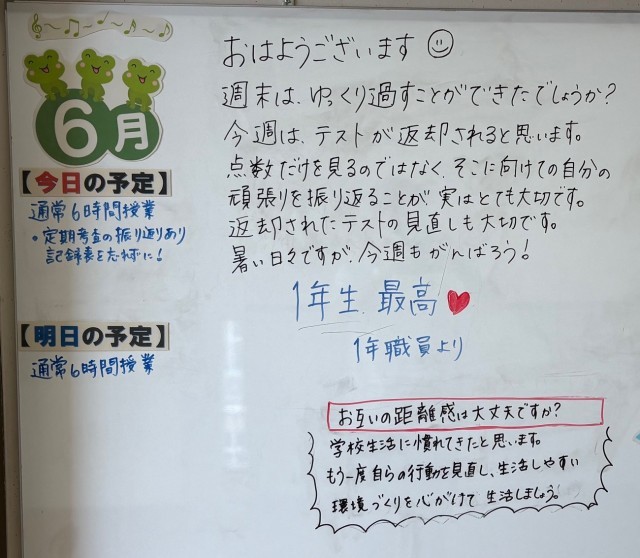 6月
【今日の予定】
通常6時間授業
・定期考査の振り返りあり
記録表を忘れずに!
【明日の予定】
通常6時間授業
おはようございます
週末は、ゆっくり過すことができたでしょうか?
今週は、テストが返却されると思います。
点数だけを見るのではなく、そこに向けての自分の
頑張りを振り返ることが実はとても大切です。
返却されたテストの見直しも大切です。
暑い日々ですが、今週もがんばろう!
1年生、最高
1年職員より
お互いの距離感は大丈夫ですか?
学校生活に慣れてきたと思います。
もう一度自らの行動を見直し、生活しやすい
環境づくりを心がけて生活しましょう。